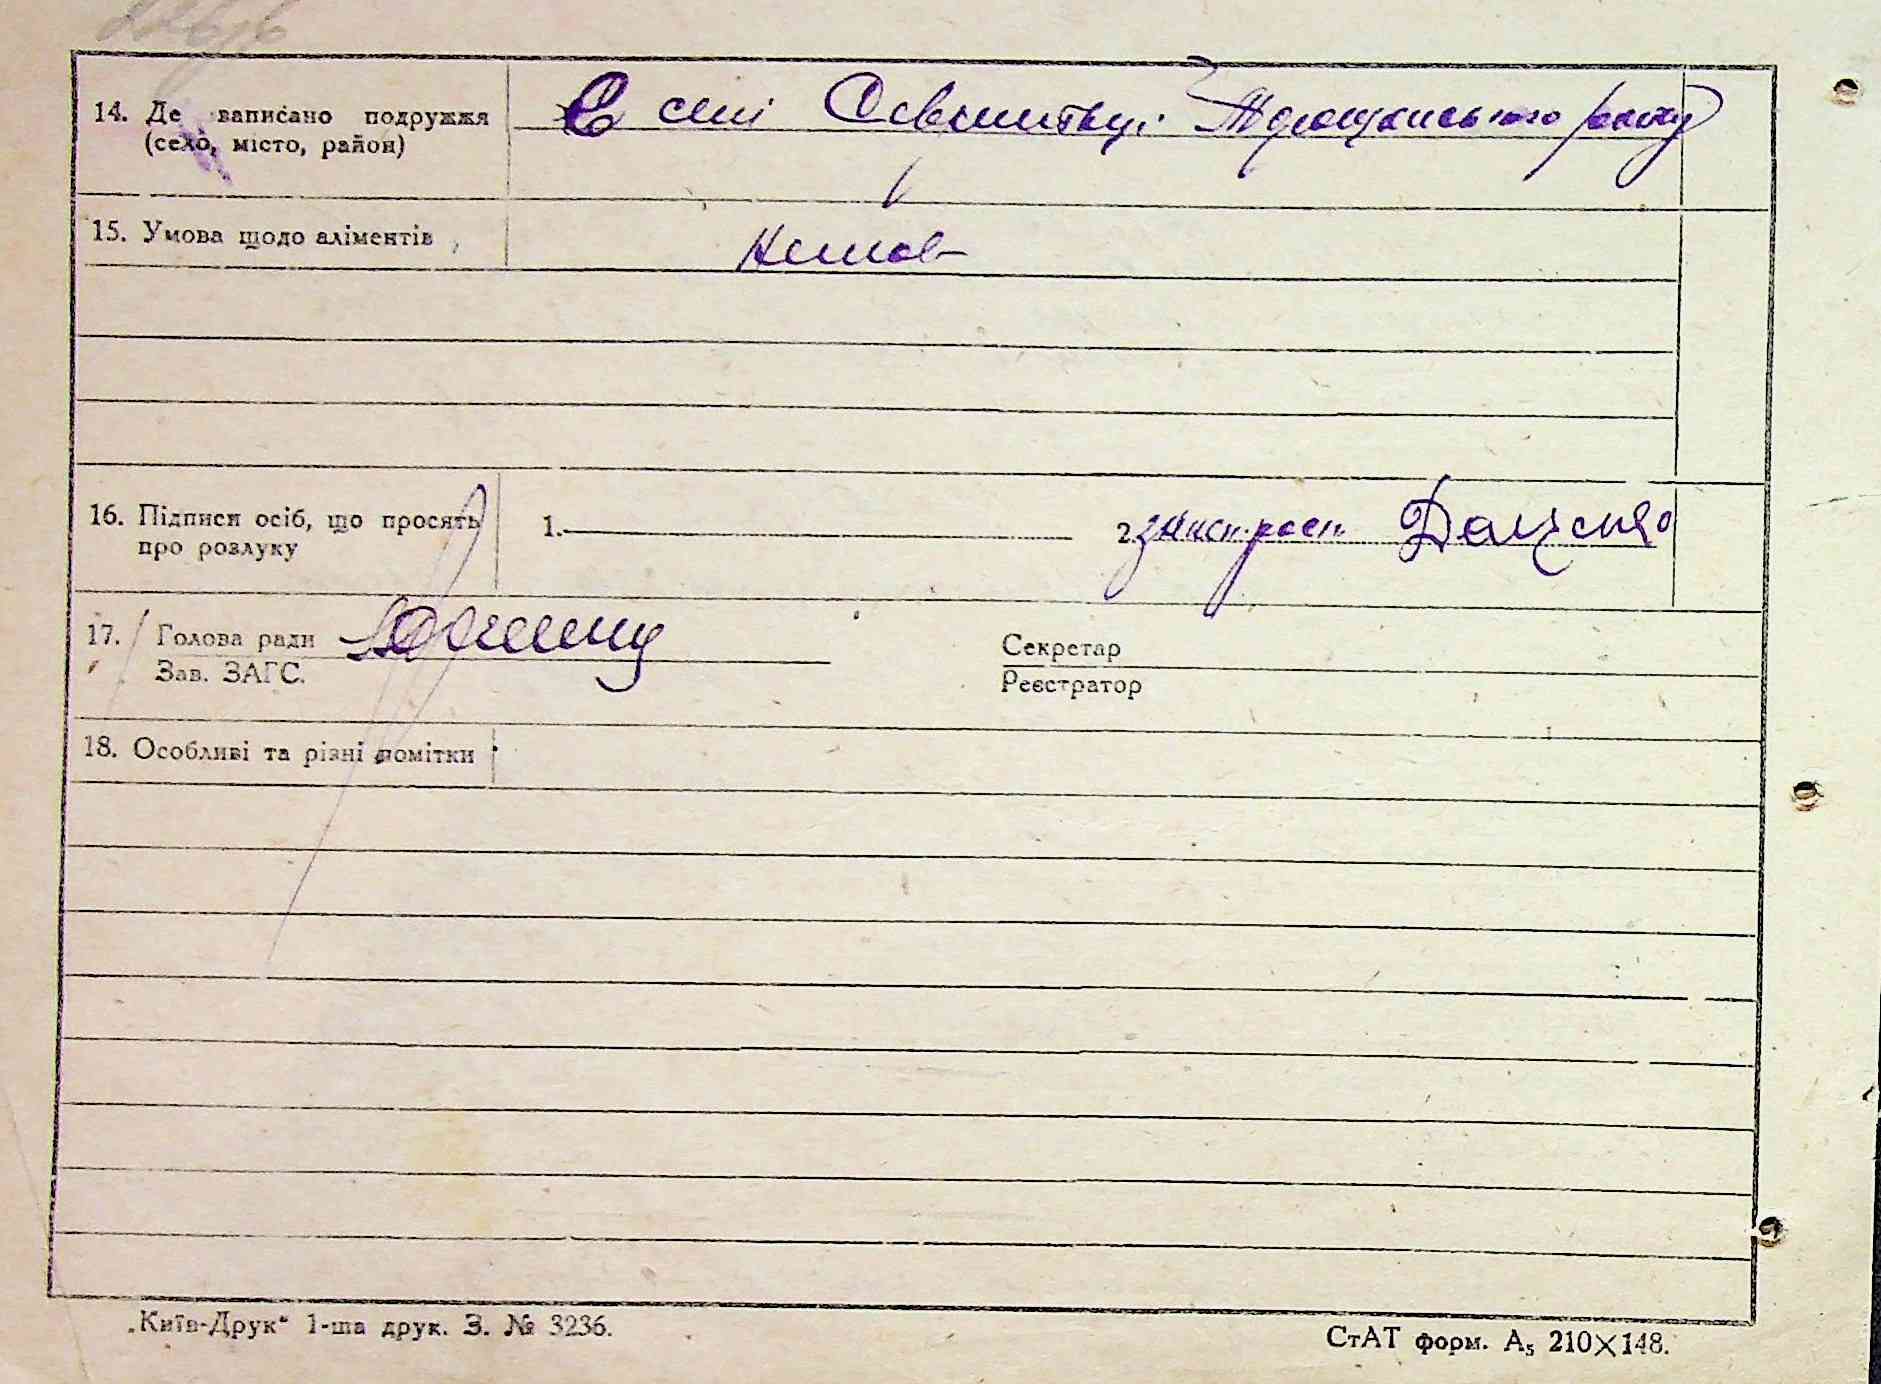 14. Де записано подружжя
(село, місто, район)
В селі
15. Умова щодо аліментів
немає
16. Підписи осіб, що просять
про розлуку
1.
2.
17. Голова ради
Зав. ЗАГС.
Секретар
Реєстратор
18. Особливі та різні помітки
„Київ-Друк“ 1-ша друк. З. № 3236.
СтАТ форм. А₅ 210×148.